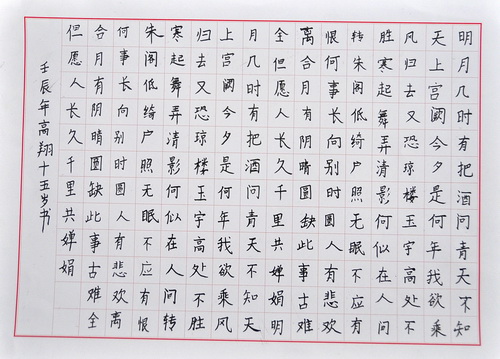 明月几时有把酒问青天不知
天上宫阙今夕是何年我欲乘
风归去又恐琼楼玉宇高处不
胜寒起舞弄清影何似在人间
转朱阁低绮户照无眠不应有
恨何事长向别时圆人有悲欢
离合月有阴晴圆缺此事古难
全但愿人长久千里共婵娟明
月几时有把酒问青天不知天
上宫阙今夕是何年我欲乘风
归去又恐琼楼玉宇高处不胜
寒起舞弄清影何似在人间转
朱阁低绮户照无眠不应有恨
何事长向别时圆人有悲欢离
合月有阴晴圆缺此事古难全
但愿人长久千里共婵娟
壬辰年高翔十五岁书